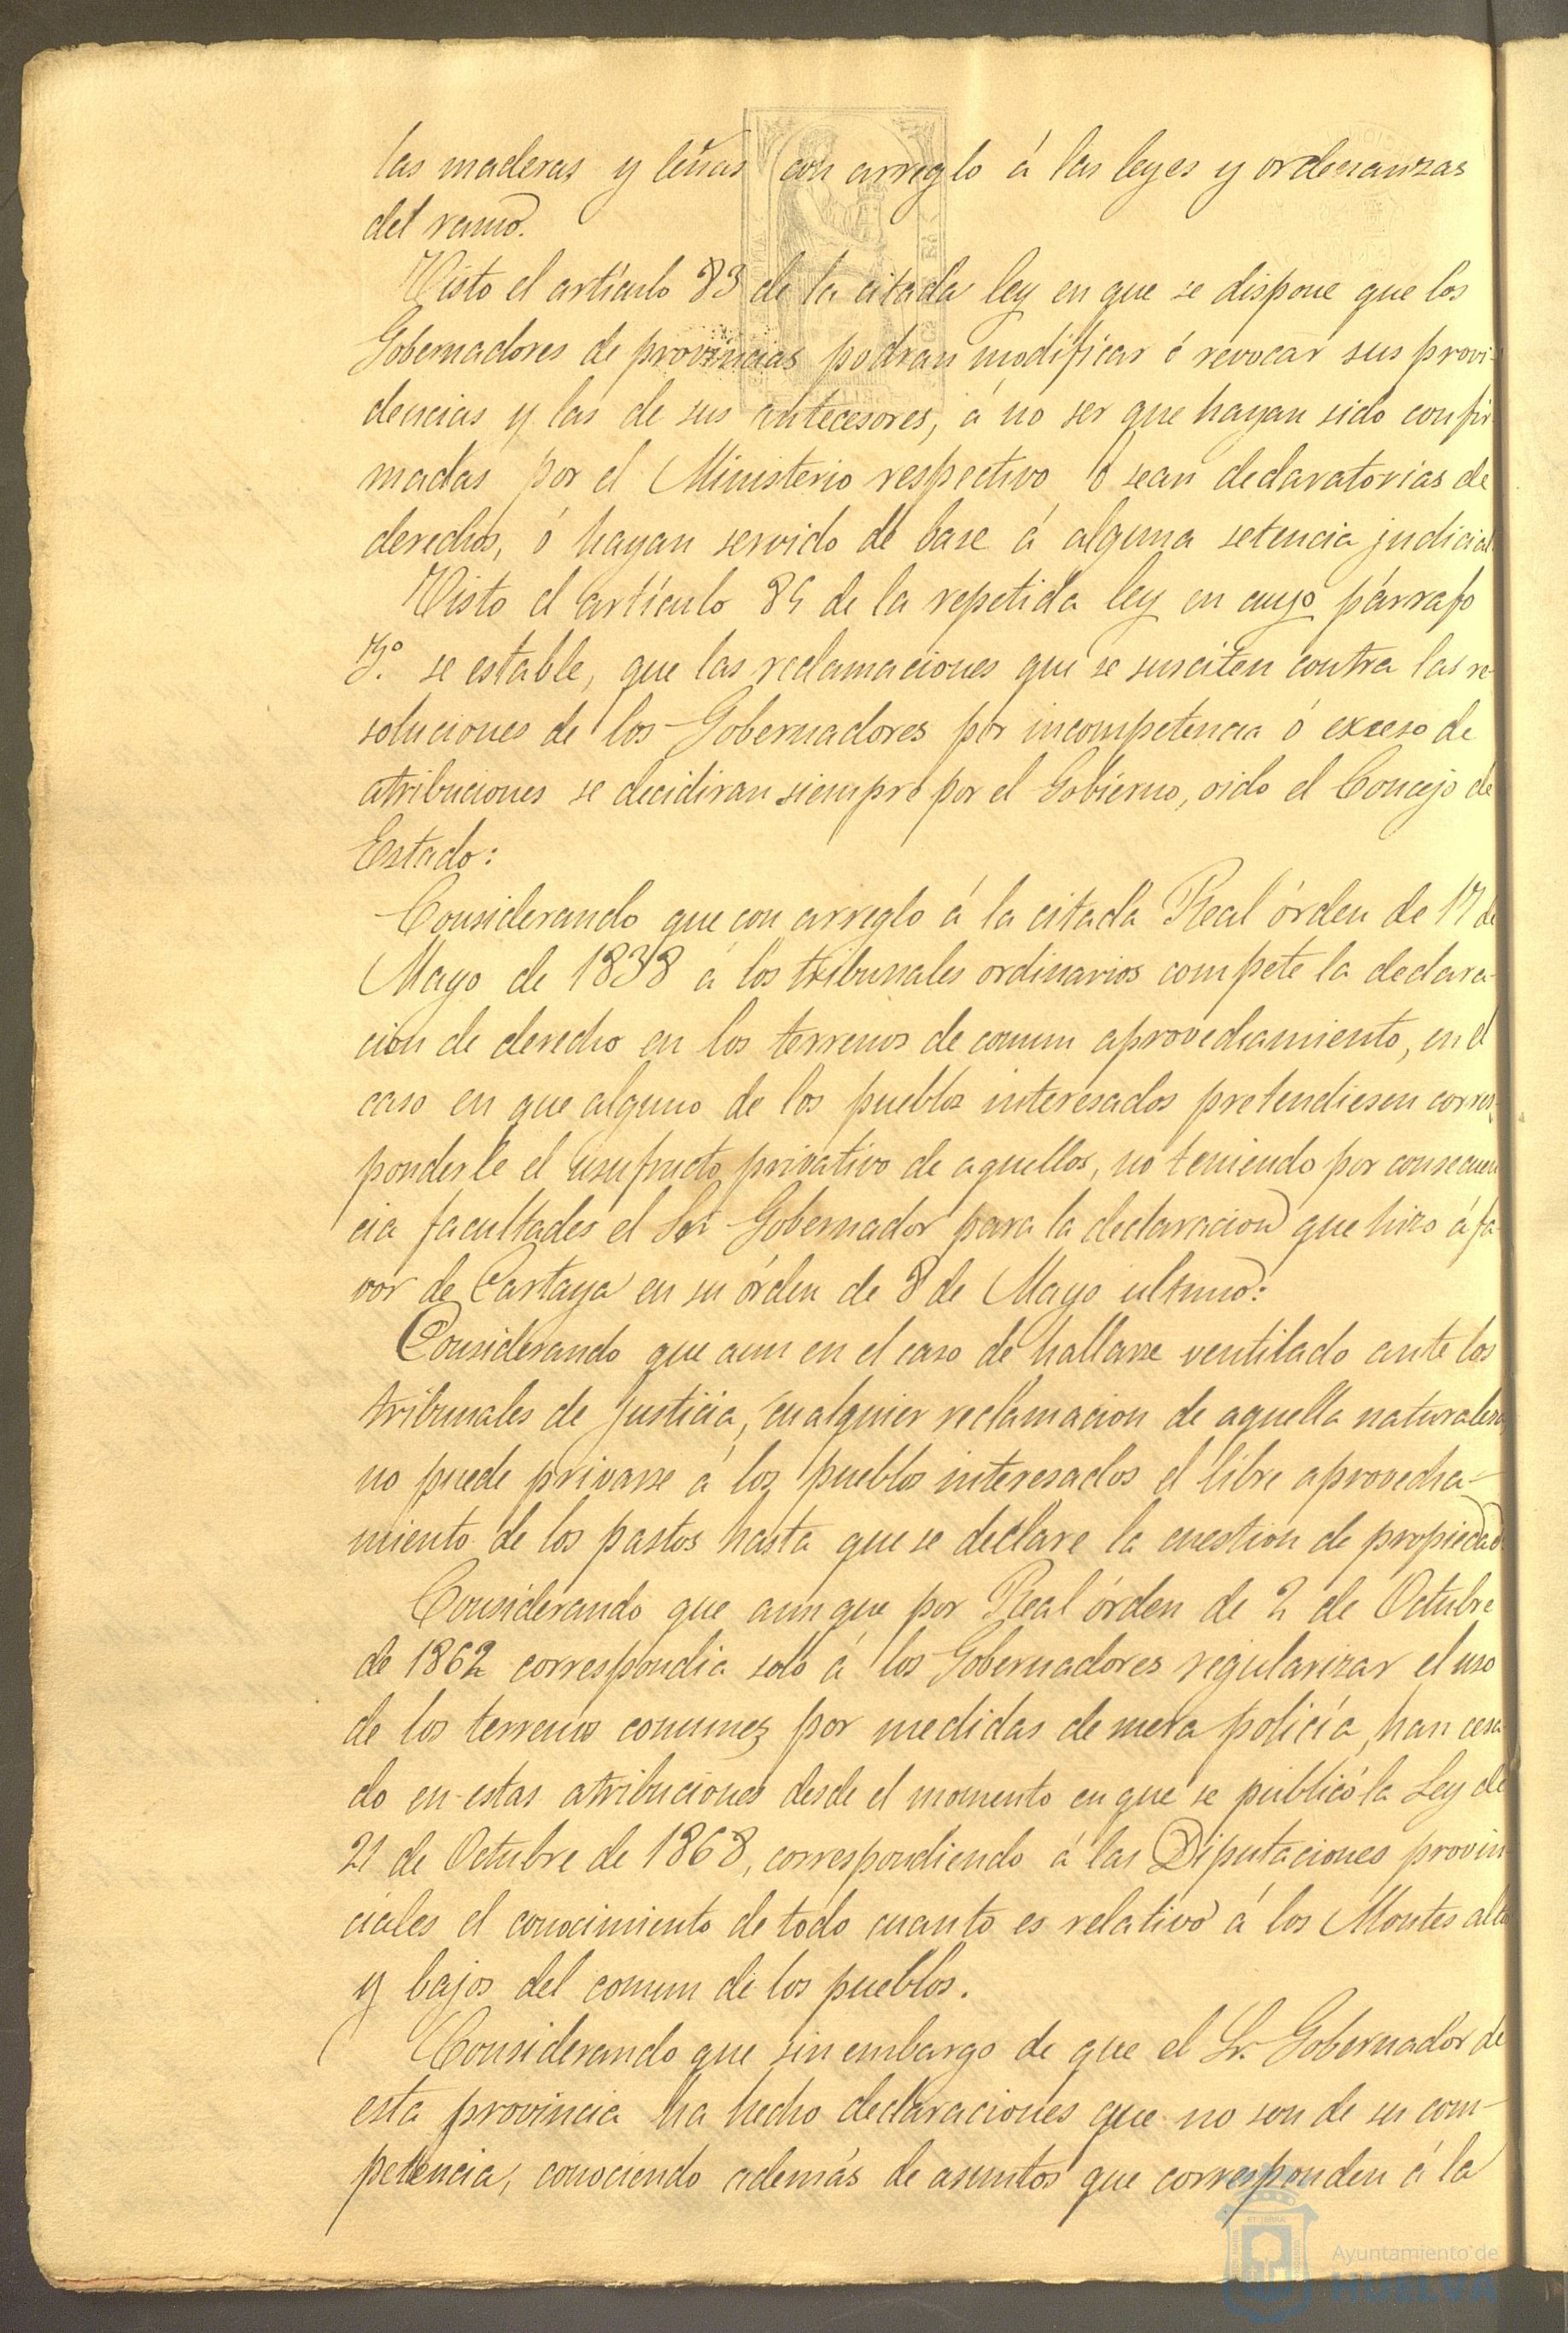 las maderas y leñas con arreglo á las leyes y ordenanzas
del ramo.
Visto el artículo 83 de la citada ley en que se dispone que los
Gobernadores de provincias podran modificar ó revocar sus provi-
dencias y las de sus antecesores, á no ser que hayan sido confir
madas por el Ministerio respectivo ó sean declaratorias de
derechos, ó hayan servido de base á alguna setencia judicial
Visto el artículo 89 de la repetida ley en cuyo párrafo
3.º se estable, que las reclamaciones que se susciten contra las re
soluciones de los Gobernadores por incompetencia ó exceso de
atribuciones se decidiran siempre por el Gobierno, oido el Concejo de
Estado:
Considerando que con arreglo á la citada Real órden de 17 de
Mayo de 1838 á los tribunales ordinarios compete la declara-
ción de derecho en los terrenos de comun aprovechamiento, en el
caso en que alguno de los pueblos interesados pretendiesen corres-
ponderle el usufructo privativo de aquellos, no teniendo por consecuen
cia facultades el Sr. Gobernador para la declaracion que hizo á fa-
vor de Cartaya en su órden de 8 de Mayo ultimo:
Considerando que aun en el caso de hallarse ventilado ante los
tribunales de Justicia, cualquier reclamacion de aquella naturaleza
no puede privarse á los pueblos interesados el libre aprovecha-
miento de los pastos hasta que se declare la cuestion de propiedad.
Considerando que aunque por Real órden de 2 de Octubre
de 1862 correspondia solo á los Gobernadores regularizar el uso
de los terrenos comunes por medidas de mera policía, han cesa
do en estas atribuciones desde el momento en que se publicó la Ley de
21 de Octubre de 1868, correspondiendo á las Diputaciones provin
ciales el conocimiento de todo cuanto es relativo á los Montes altos
y bajos del comun de los pueblos.
Considerando que sin embargo de que el Sr. Gobernador de
esta provincia ha hecho declaraciones que no son de su com-
petencia, conociendo además de asuntos que corresponden á la
Ayuntamiento de
HUELVA